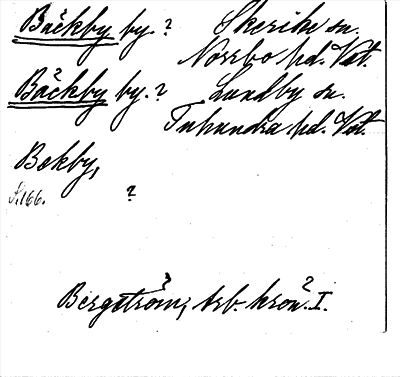 Bäckby by. ? Skerike sn.
Norrbo hd. Vst.
Bäckby by. ? Lundby sn.
Tuhundra hd. Vst.
Bekby,
S.166. ?
Bergström, Arb. kron. I.